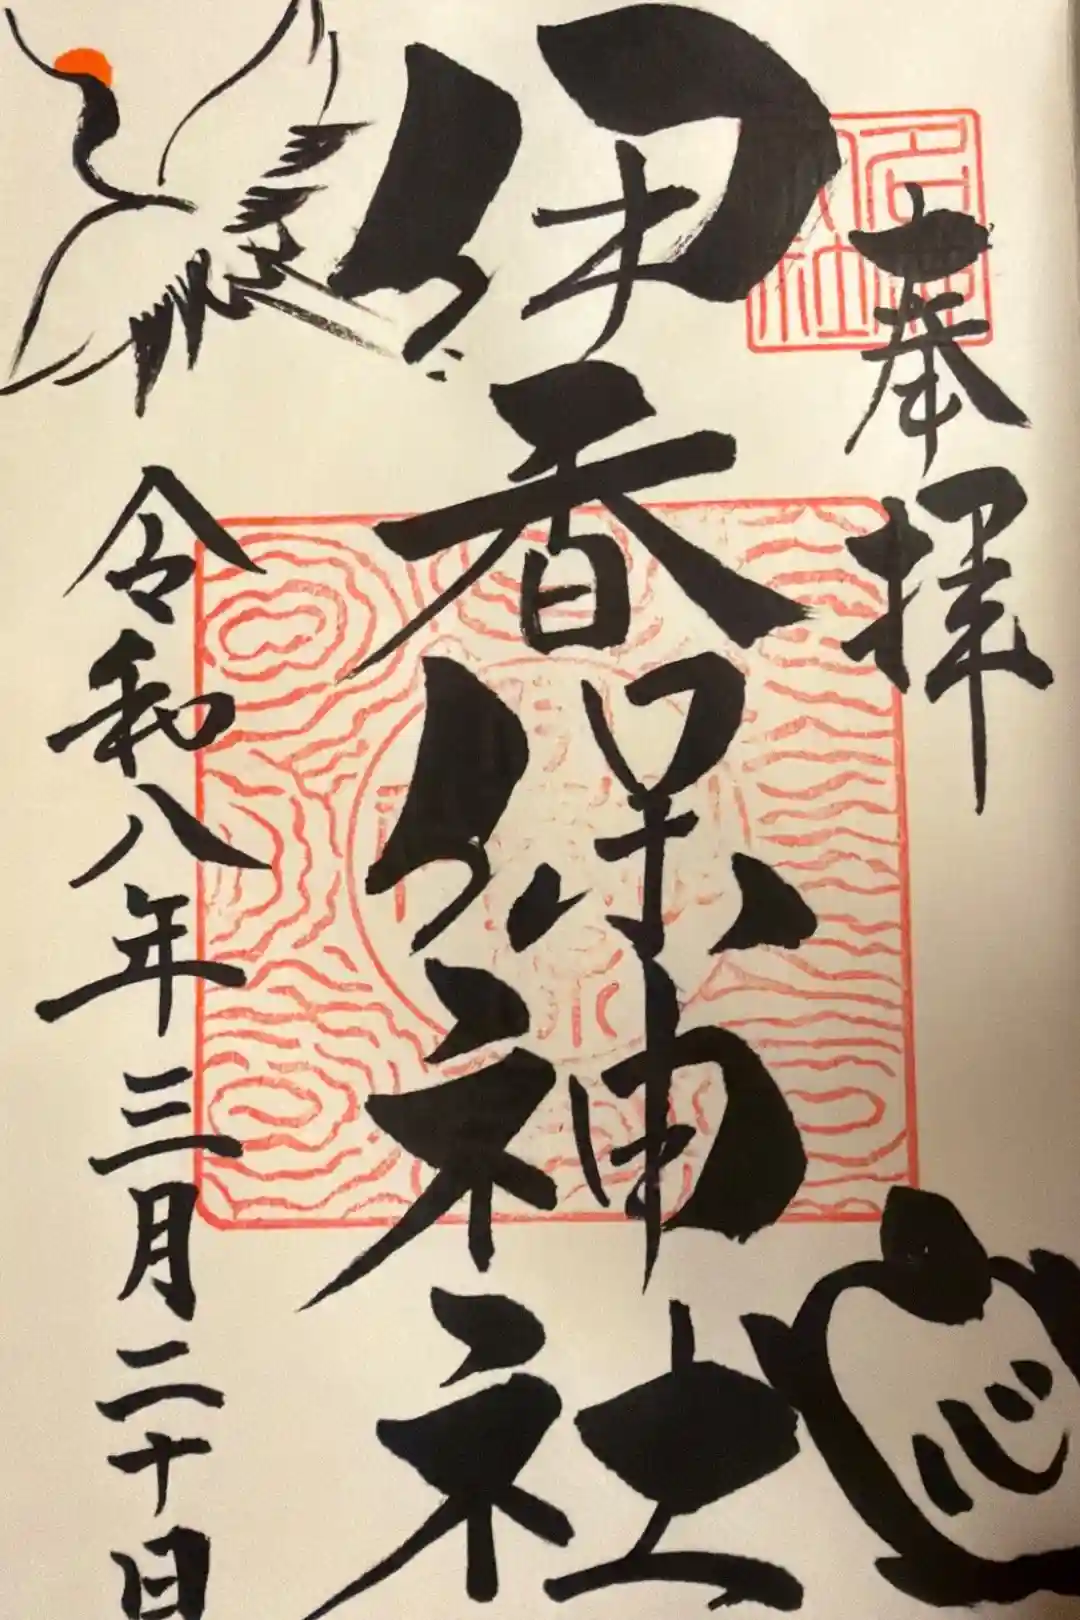 奉拝
心
伊香保神社
令和八年三月二十日